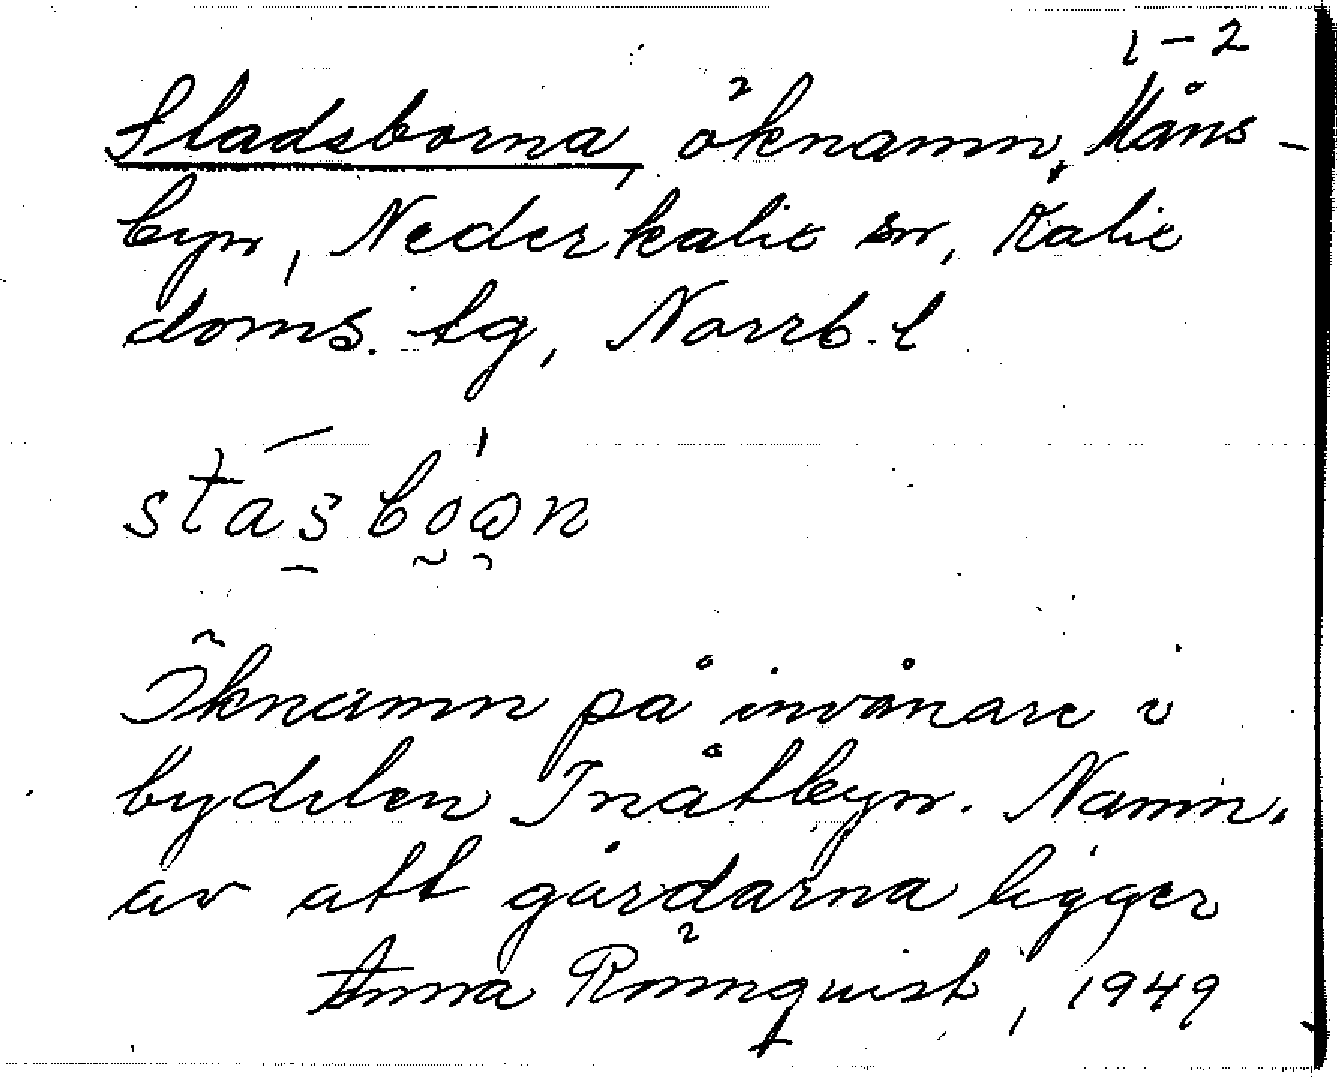 1-2
Stadsborna, öknamn, Måns-
byn, Nederkalix sn, Kalix
doms. tg, Norrb. l
stasboən
Öknamn på invånare i
bydelen Inåtbyn. Namn.
av att gårdarna ligger
Anna Rönnquist, 1949